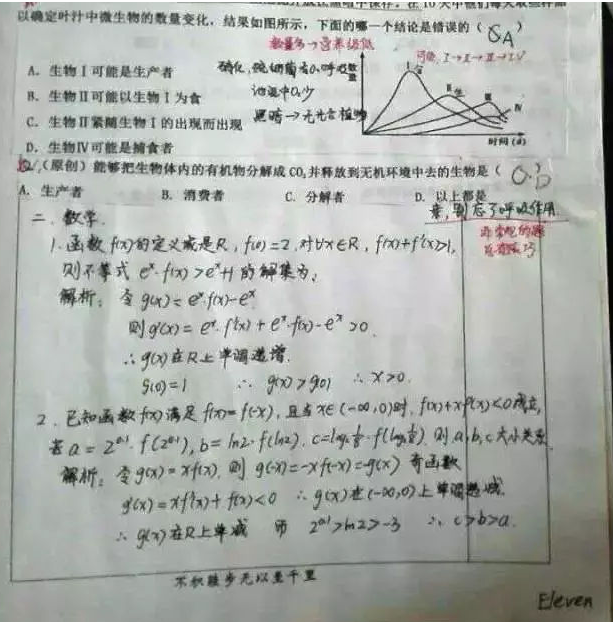 以确定叶汁中微生物的数量变化，结果如图所示，下面的哪一个结论是错误的（ A）
A．生物Ⅰ可能是生产者
B．生物Ⅱ可能以生物Ⅰ为食
C．生物Ⅱ紧随生物Ⅰ的出现而出现
D．生物Ⅳ可能是捕食者
数量
Ⅰ
Ⅱ
Ⅲ
Ⅳ
时间 (d)
（原创）能够把生物体内的有机物分解成 CO₂并释放到无机环境中去的生物是（ D
A．生产者 B．消费者 C．分解者 D．以上都是
别忘了呼吸作用
二、数学
1. 函数 f(x)的定义域是R，f(0)=2，对∀x∈R，f(x)+f'(x)>1，
则不等式 eˣ·f(x)>eˣ+1 的解集为：
解析：令 g(x)=eˣ·f(x)-eˣ
则g'(x)=eˣ·f'(x)+eˣ·f(x)-eˣ>0
∴g(x)在R上单调递增.
g(0)=1 ∴ g(x)>g(0) ∴x>0.
2. 已知函数f(x)满足 f(x)=f(-x)，且当x∈(-∞,0)时，f(x)+xf'(x)<0成立，
若 a=2^0.1·f(2^0.1)，b=ln2·f(ln2)，则a,b,c大小关系
解析：令g(x)=xf(x)，则 g(-x)=-xf(-x)=-g(x) 奇函数
g'(x)=xf'(x)+f(x)<0 ∴g(x)在(-∞,0)上单调递减.
∴g(x)在R上单减 而 2^0.1>ln2>-3 ∴ c>b>a.
不积跬步无以至千里
Eleven